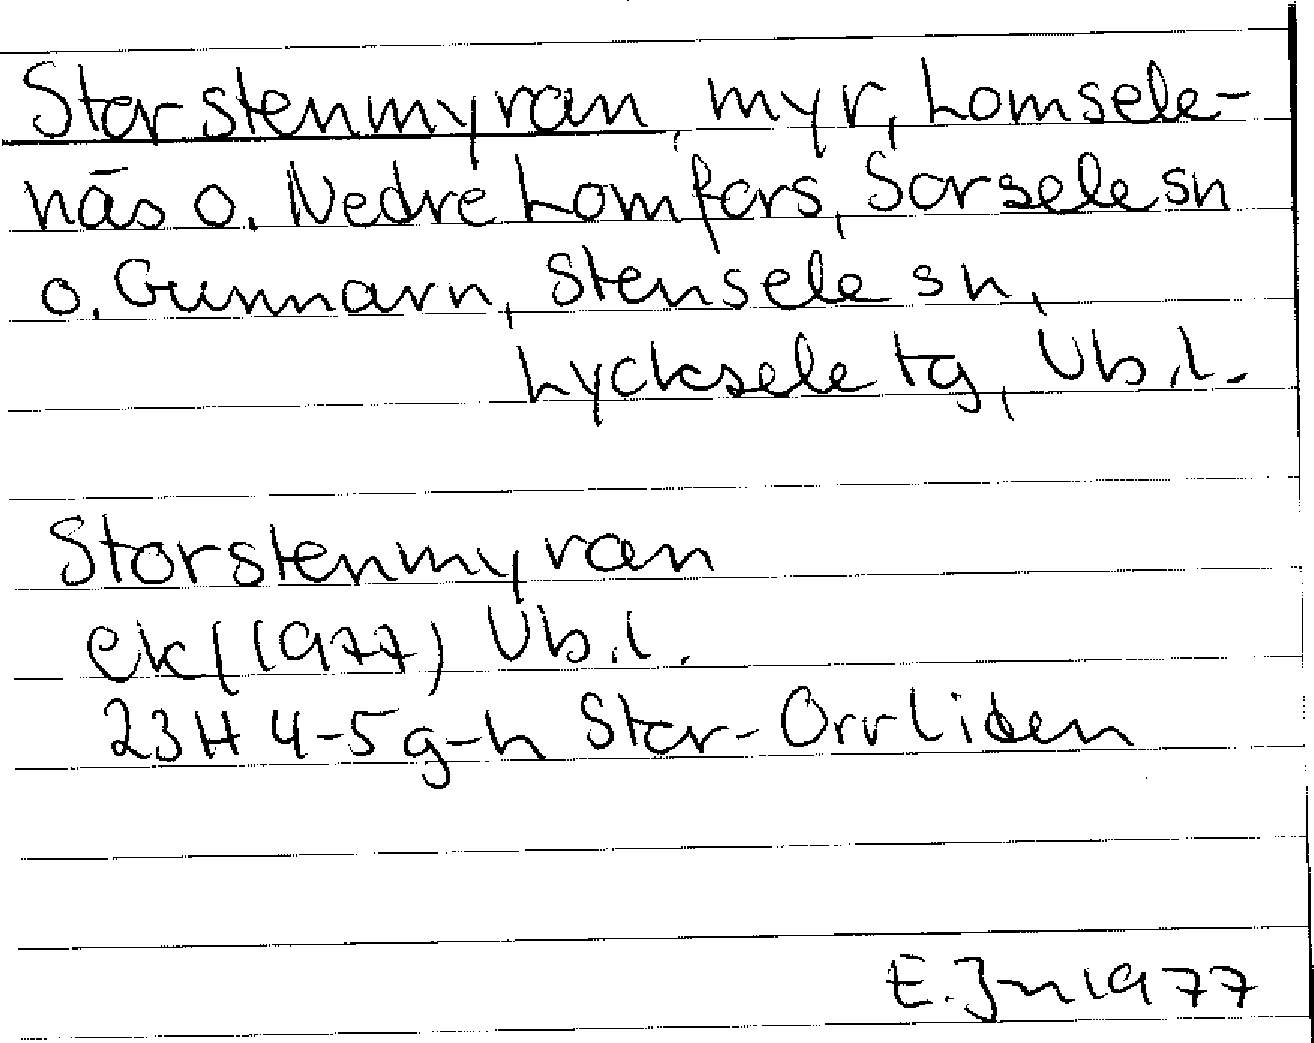 Storstenmyran, myr, Lomsele-
näs o. Nedre Lomfors, Sorsele sn
o. Gunnarn, Stensele sn,
Lycksele tg, Vb.l.
Storstenmyran
ek (1977) Vb.l.
23H 4-5 g-h Stor-Orrliden
E. Jn 1977